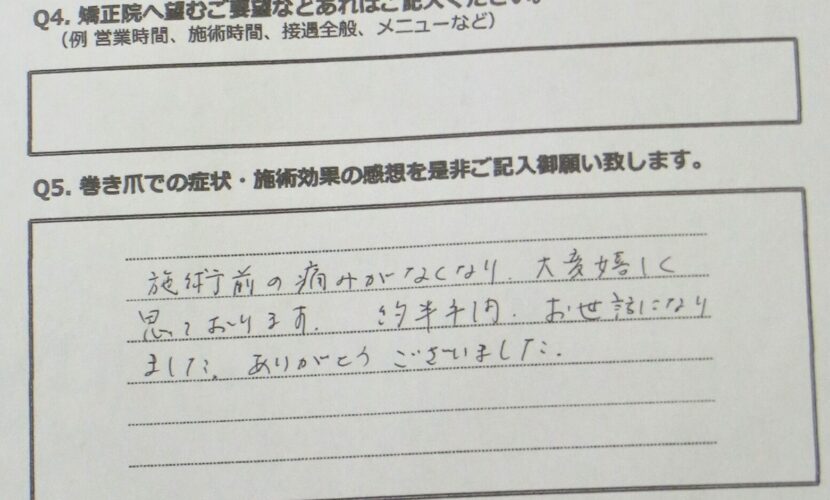 Q4. 矯正院へ望むご要望などあればご記入ください。
（例 営業時間、施術時間、接遇全般、メニューなど）
Q5. 巻き爪での症状・施術効果の感想を是非ご記入御願い致します。
施術前の痛みがなくなり、大変嬉しく
思っております。 約半年間、お世話になり
ました。ありがとうございました。